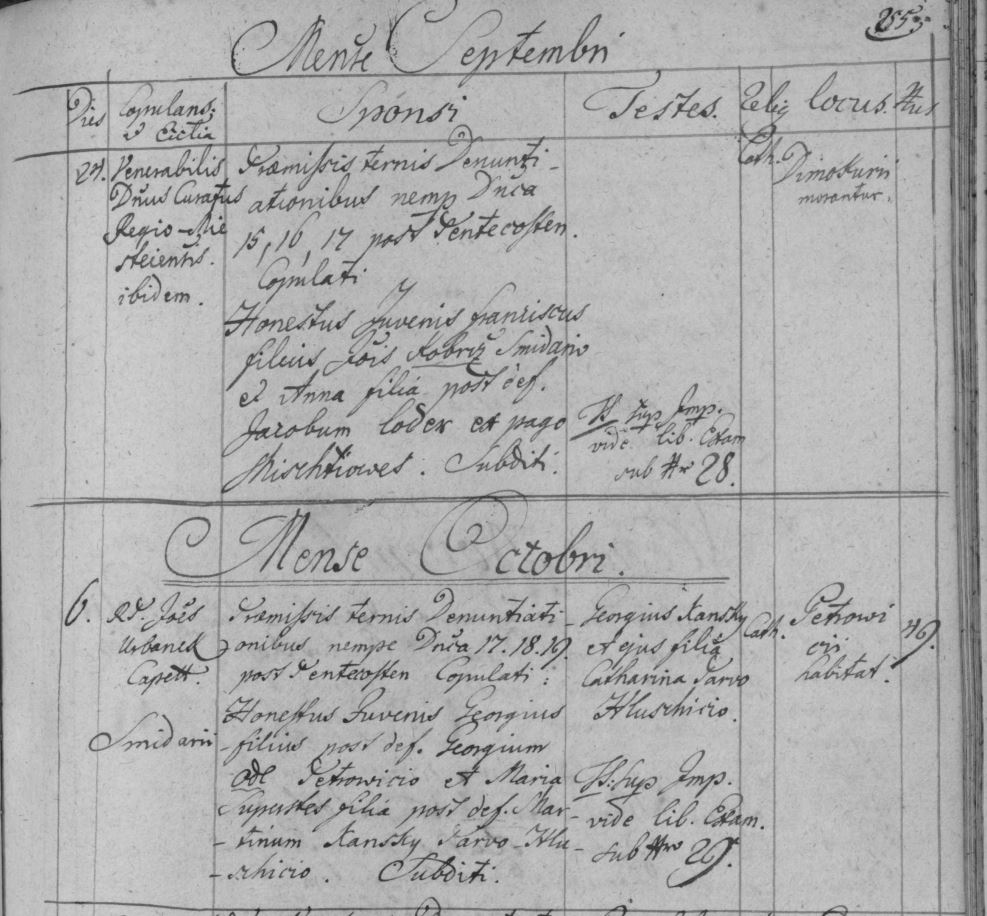 255
Mense Septembri
Dies Copulans; Sponsi Testes. Relig locus. Nrus
Ecctia
Cath. Dimokurii
morantur.
Venerabilis
Dnus Curatus
Regio-Mie
steiensis.
ibidem.
Præmissis ternis Denunti-
ationibus nemp Dnca
15, 16, 17 post Pentecosten.
Copulati
Honestus Juvenis Franziscus
filius Jois Kobrz Smidario
et Anna filia post def.
Jacobum Loder ex pago
Mischtiowes. Subditi.
sup Imp.
vide lib. Exam
sub Nr 28.
Mense Octobri.
6. Rd. Joes
Urbanek
Capell.
Smidarii
Præmissis ternis Denuntiati-
onibus nempe Dnca 17. 18. 19.
post Pentecosten Copulati:
Honestus Juvenis Georgius
filius post def. Georgium
Petrowicio et Maria
Superstes filia post def. Mar-
-tinum Kansky Parvo-Hlu-
-schicio. Subditi.
Georgius Kansky
et ejus filia
Catharina Parvo
Hluschicio.
sup Imp.
vide lib. Exam.
sub Nro 29.
Cath.
Petrowi
cii
habitat.
49.